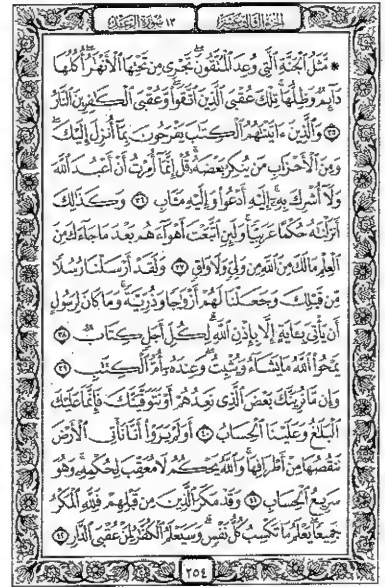 الجزء الثالث عشر
١٣ سورة الرعد
۞ مَّثَلُ ٱلْجَنَّةِ ٱلَّتِى وُعِدَ ٱلْمُتَّقُونَ تَجْرِى مِن تَحْتِهَا ٱلْأَنْهَٰرُ أُكُلُهَا
دَآئِمٌ وَظِلُّهَا تِلْكَ عُقْبَى ٱلَّذِينَ ٱتَّقَوا۟ وَّعُقْبَى ٱلْكَٰفِرِينَ ٱلنَّارُ
٣٥ وَٱلَّذِينَ ءَاتَيْنَٰهُمُ ٱلْكِتَٰبَ يَفْرَحُونَ بِمَآ أُنزِلَ إِلَيْكَ
وَمِنَ ٱلْأَحْزَابِ مَن يُنكِرُ بَعْضَهُۥ قُلْ إِنَّمَآ أُمِرْتُ أَنْ أَعْبُدَ ٱللَّهَ
وَلَآ أُشْرِكَ بِهِۦٓ إِلَيْهِ أَدْعُوا۟ وَإِلَيْهِ مَـَٔابِ ٣٦ وَكَذَٰلِكَ
أَنزَلْنَٰهُ حُكْمًا عَرَبِيًّا وَلَئِنِ ٱتَّبَعْتَ أَهْوَآءَهُم بَعْدَ مَا جَآءَكَ مِنَ
ٱلْعِلْمِ مَا لَكَ مِنَ ٱللَّهِ مِن وَلِىٍّ وَلَا وَاقٍ ٣٧ وَلَقَدْ أَرْسَلْنَا رُسُلًا
مِّن قَبْلِكَ وَجَعَلْنَا لَهُمْ أَزْوَٰجًا وَذُرِّيَّةً وَمَا كَانَ لِرَسُولٍ
أَن يَأْتِىَ بِـَٔايَةٍ إِلَّا بِإِذْنِ ٱللَّهِ لِكُلِّ أَجَلٍ كِتَابٌ ٣٨
يَمْحُوا۟ ٱللَّهُ مَا يَشَآءُ وَيُثْبِتُ وَعِندَهُۥٓ أُمُّ ٱلْكِتَٰبِ ٣٩
وَإِن مَّا نُرِيَنَّكَ بَعْضَ ٱلَّذِى نَعِدُهُمْ أَوْ نَتَوَفَّيَنَّكَ فَإِنَّمَا عَلَيْكَ
ٱلْبَلَٰغُ وَعَلَيْنَا ٱلْحِسَابُ ٤٠ أَوَلَمْ يَرَوْا۟ أَنَّا نَأْتِى ٱلْأَرْضَ
نَنقُصُهَا مِنْ أَطْرَافِهَا وَٱللَّهُ يَحْكُمُ لَا مُعَقِّبَ لِحُكْمِهِۦ وَهُوَ
سَرِيعُ ٱلْحِسَابِ ٤١ وَقَدْ مَكَرَ ٱلَّذِينَ مِن قَبْلِهِمْ فَلِلَّهِ ٱلْمَكْرُ
جَمِيعًا يَعْلَمُ مَا تَكْسِبُ كُلُّ نَفْسٍ وَسَيَعْلَمُ ٱلْكُفَّٰرُ لِمَنْ عُقْبَى ٱلدَّارِ ٤٢
٢٥٤